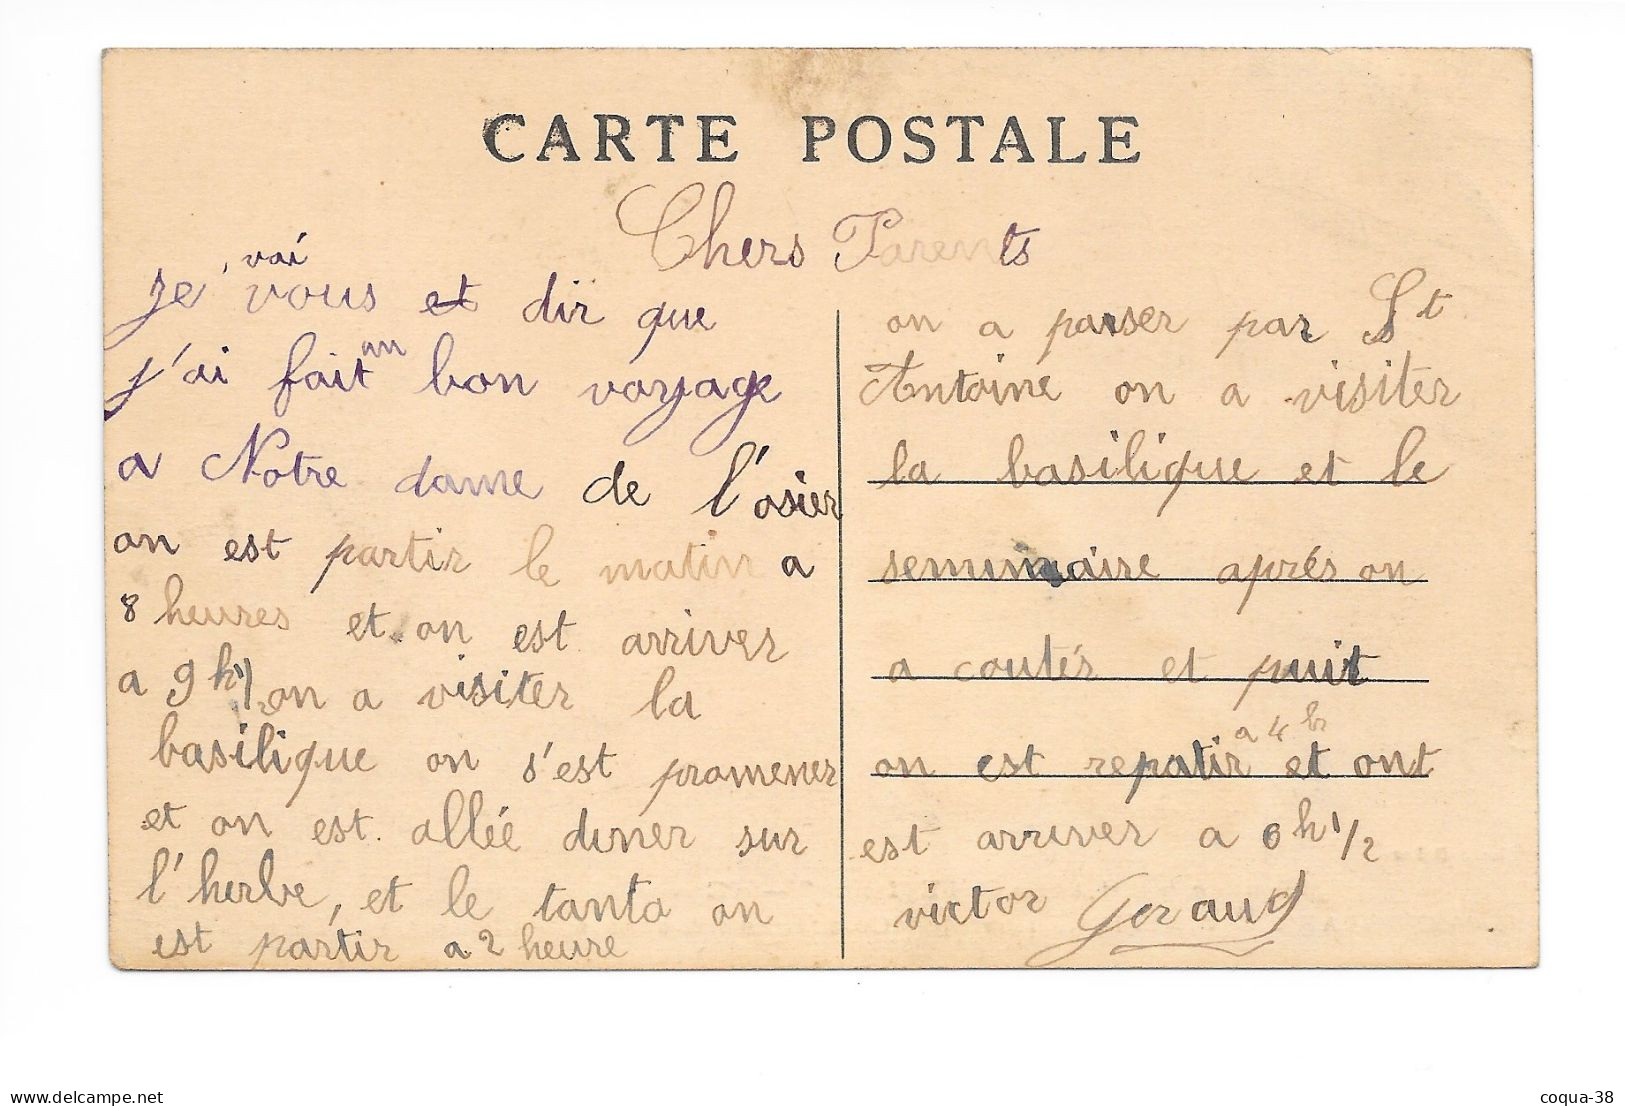 CARTE POSTALE
Chers Parents
vai
je vous et dir que
un
j'ai fait bon voyage
a Notre dame de l'osier
on est partir le matin a
8 heures et on est arriver
a 9 h 1/2 on a visiter la
basilique on s'est promener
et on est allée diner sur
l'herbe, et le tanto on
est partir a 2 heure
on a passer par St
Antoine on a visiter
la basilique et le
seminaire aprés on
a coutér et puit
a 4 h
on est repatir et ont
est arriver a 6 h 1/2
victor Geraud
delcampe.net
coqua-38